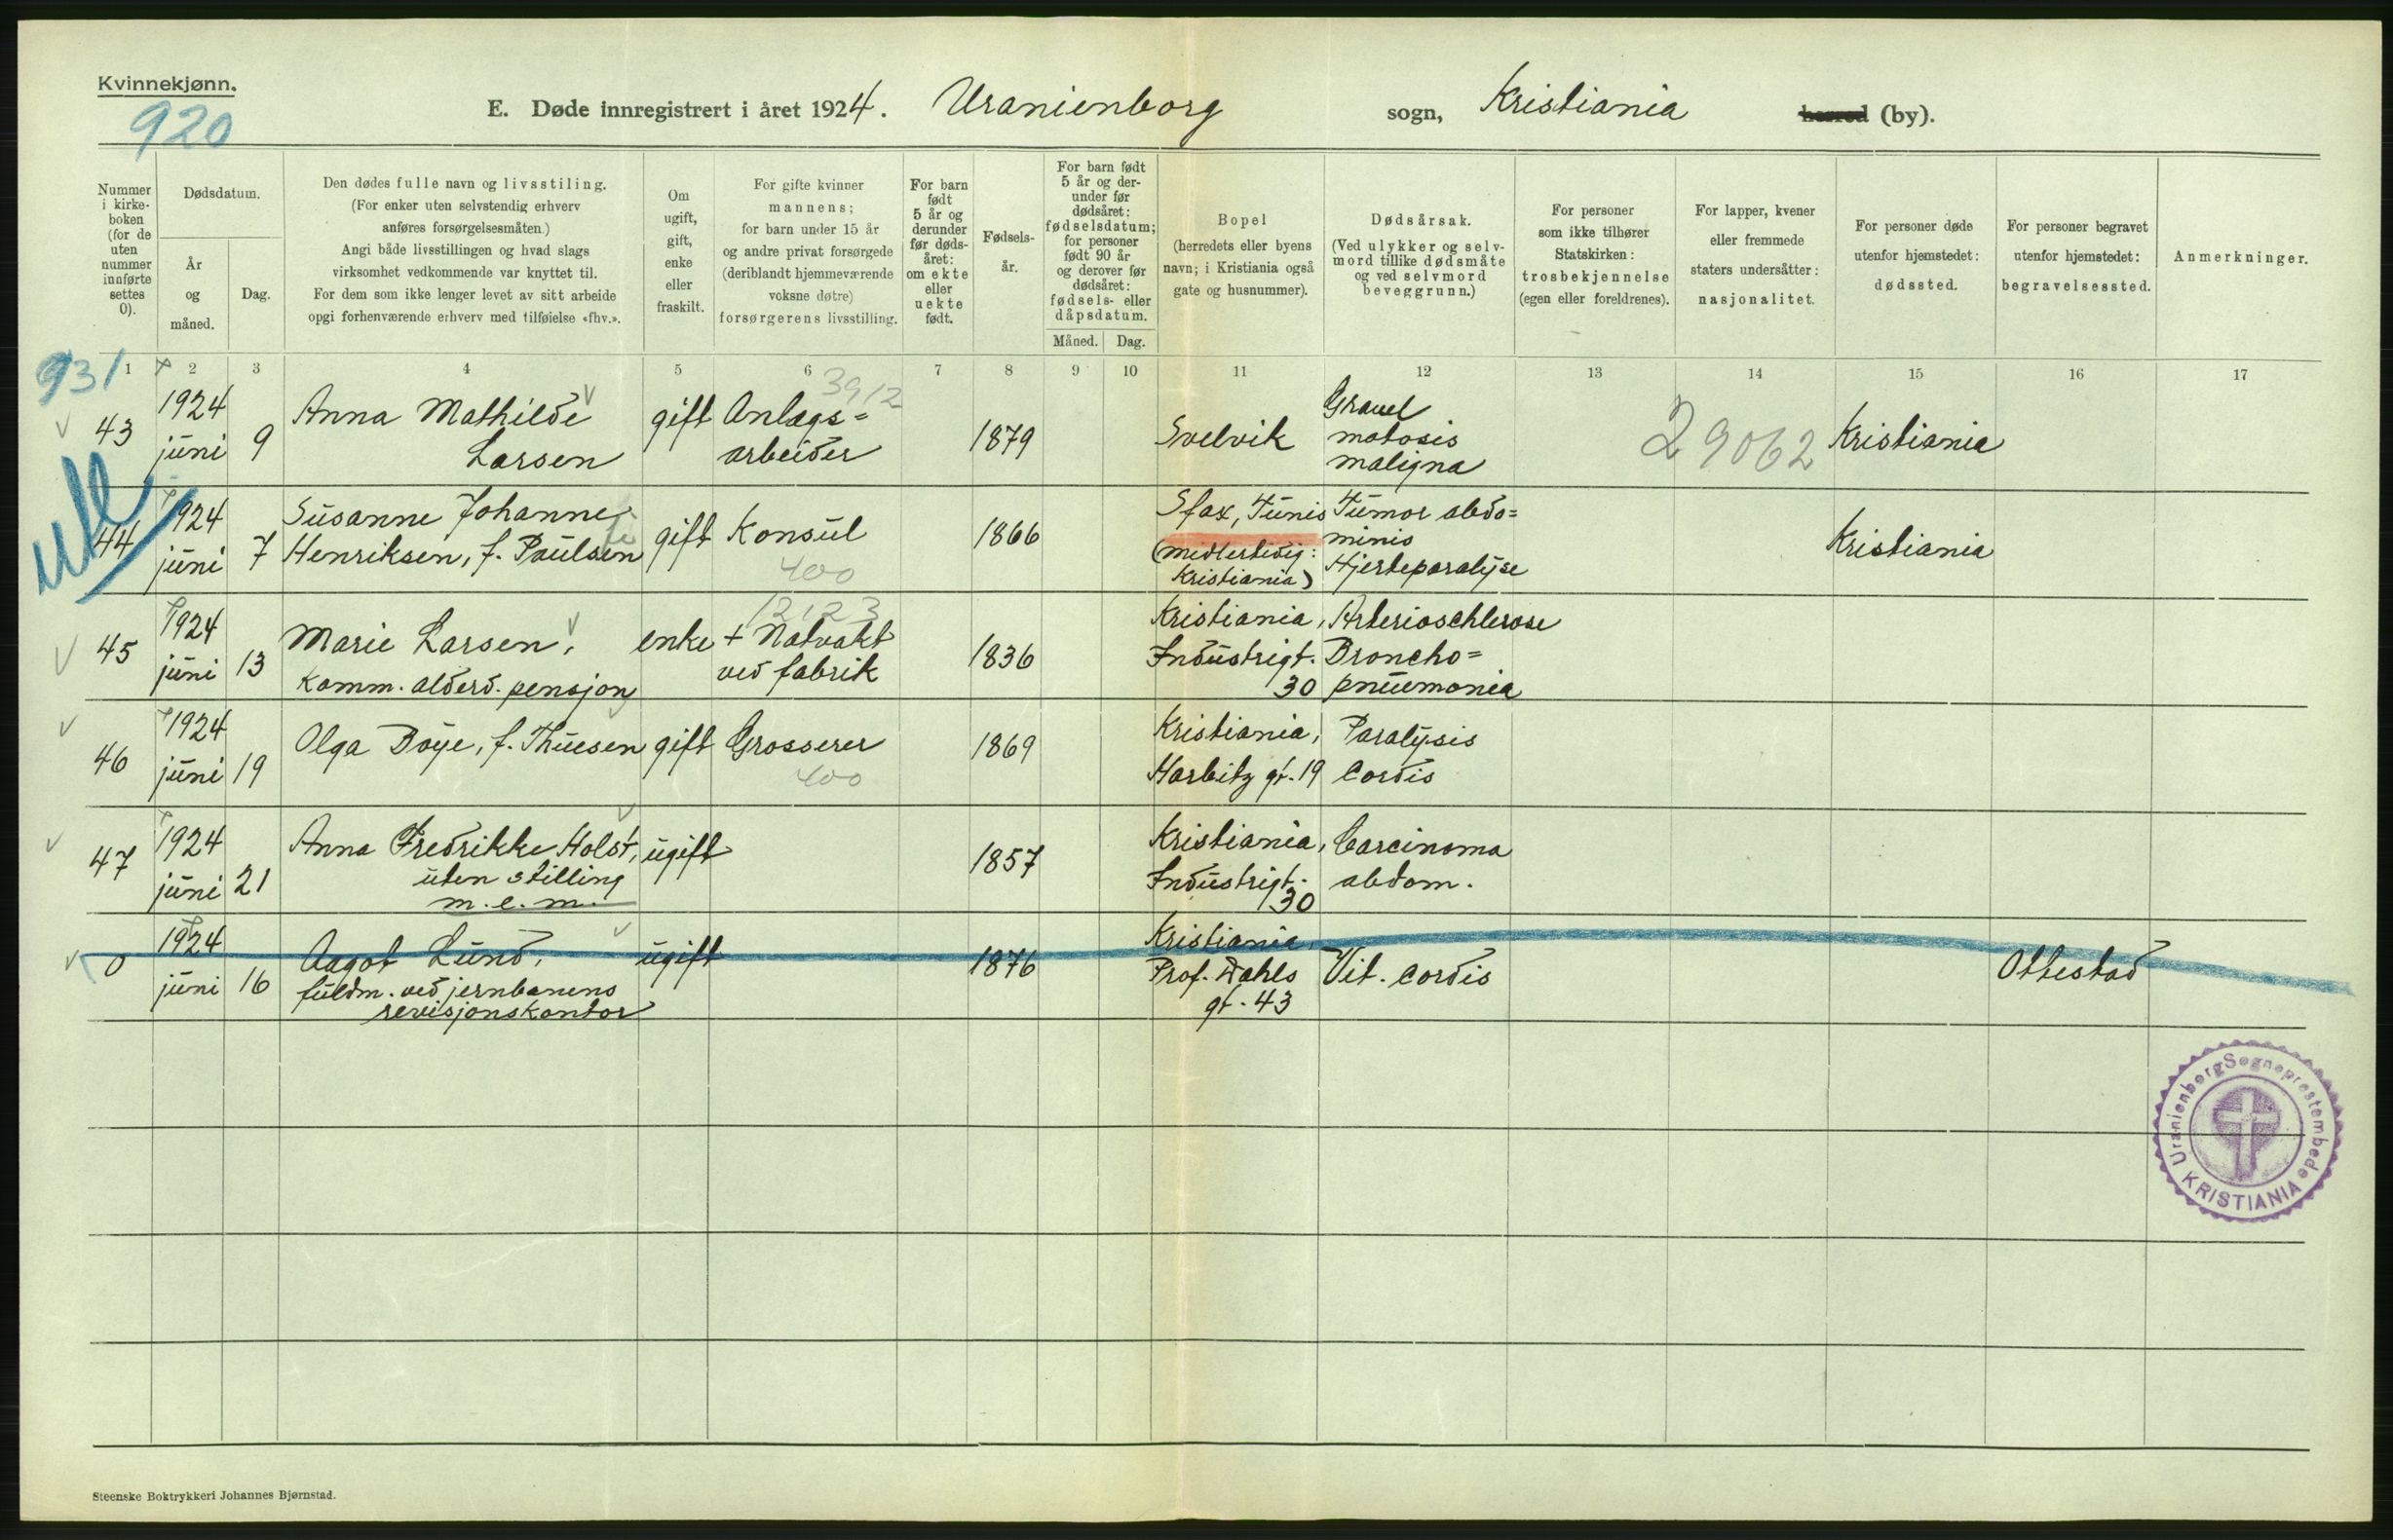 Kvinnekjønn.
920
E. Døde innregistrert i året 1924. Uranienborg sogn, Kristiania herred (by).
Nummer
i kirke-
boken
(for de
uten
nummer
innførte
settes
0).
Dødsdatum.
År
og
måned.
Dag.
Den dødes fulle navn og livsstiling.
(For enker uten selvstendig erhverv
anføres forsørgelsesmåten.)
Angi både livsstillingen og hvad slags
virksomhet vedkommende var knyttet til.
For dem som ikke lenger levet av sitt arbeide
opgi forhenværende erhverv med tilføielse «fhv.».
Om
ugift,
gift,
enke
eller
fraskilt.
For gifte kvinner
mannens;
for barn under 15 år
og andre privat forsørgede
(deriblandt hjemmeværende
voksne døtre)
forsørgerens livsstilling.
For barn
født
5 år og
derunder
før døds-
året:
om ekte
eller
uekte
født.
Fødsels-
år.
For barn født
5 år og der-
under før
dødsåret:
fødselsdatum;
for personer
født 90 år
og derover før
dødsåret:
fødsels- eller
dåpsdatum.
Måned. Dag.
Bopel
(herredets eller byens
navn; i Kristiania også
gate og husnummer).
Dødsårsak.
(Ved ulykker og selv-
mord tillike dødsmåte
og ved selvmord
beveggrunn.)
For personer
som ikke tilhører
Statskirken:
trosbekjennelse
(egen eller foreldrenes).
For lapper, kvener
eller fremmede
staters undersåtter:
nasjonalitet.
For personer døde
utenfor hjemstedet:
dødssted.
For personer begravet
utenfor hjemstedet:
begravelsessted.
Anmerkninger.
1 2 3 4 5 6 7 8 9 10 11 12 13 14 15 16 17
931
43
1924
juni 9
Anna Mathilde
Larsen
gift
3912
Anlegs=
arbeider
1879
Svelvik
matosis
maligna
29062
Kristiania
utl
44
1924
juni 7
Susanne Johanne
Henriksen, f. Paulsen
gift
Konsul
400
1866
Sfax, Tunis
(midlertidig:
Kristiania)
Tumor abdo=
minis
Hjerteparalyse
Kristiania
45
1924
juni 13
Marie Larsen,
komm. alderd. pensjon
enke
12123
+ Natvakt
ved fabrik
1836
Kristiania,
Industrigt.
30
Arterioschlerose
Broncho=
pneumonia
46
1924
juni 19
Olga Boye, f. Thuesen
gift
Grosserer
400
1869
Kristiania,
Harbitz gt. 19
Paralysis
Cordis
47
1924
juni 21
Anna Fredrikke Holst,
uten stilling
m. e. m.
ugift
1857
Kristiania,
Industrigt.
30
Carcinoma
abdom.
0
1924
juni 16
Aagot Lund,
fuldm. ved jernbanens
revisjonskontor
ugift
1876
Kristiania,
Prof. Dahls
gt. 43
Vit. cordis
Ottestad
Uranienborg Sogneprestembede
KRISTIANIA
Steenske Boktrykkeri Johannes Bjørnstad.